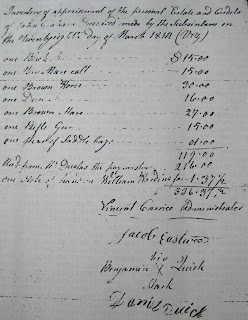 Inventory of appraisment of the personal Estate and Credits
of John Deceased made by the Subscribers on
the day of March 1818 (Viz)
one Black $15.00
one Bay Mare colt 15.00
one Brown Horse 30.00
one 16.00
one Brown Mare 27.00
one Rifle Gun 15.00
one Saddle bags 01.00
119.00
Recd from Mr Douglas the paymaster 216.00
one Note of hand on William Hardins for 1.37½
336.37½
Vincent Carrico Administrator
Jacob Eastwood
his
Benjamin X Quick
Mark
Daniel Quick